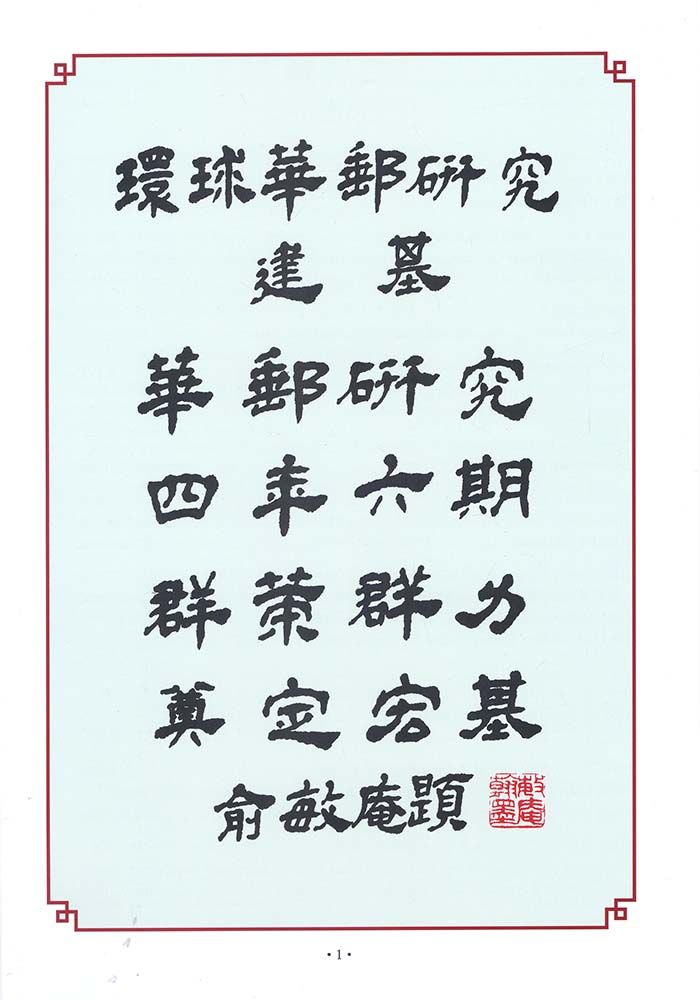 環球華郵研究
建基
華郵研究
四年六期
群策群力
奠定宏基
俞敏庵題
敏庵翰墨
• 1 •